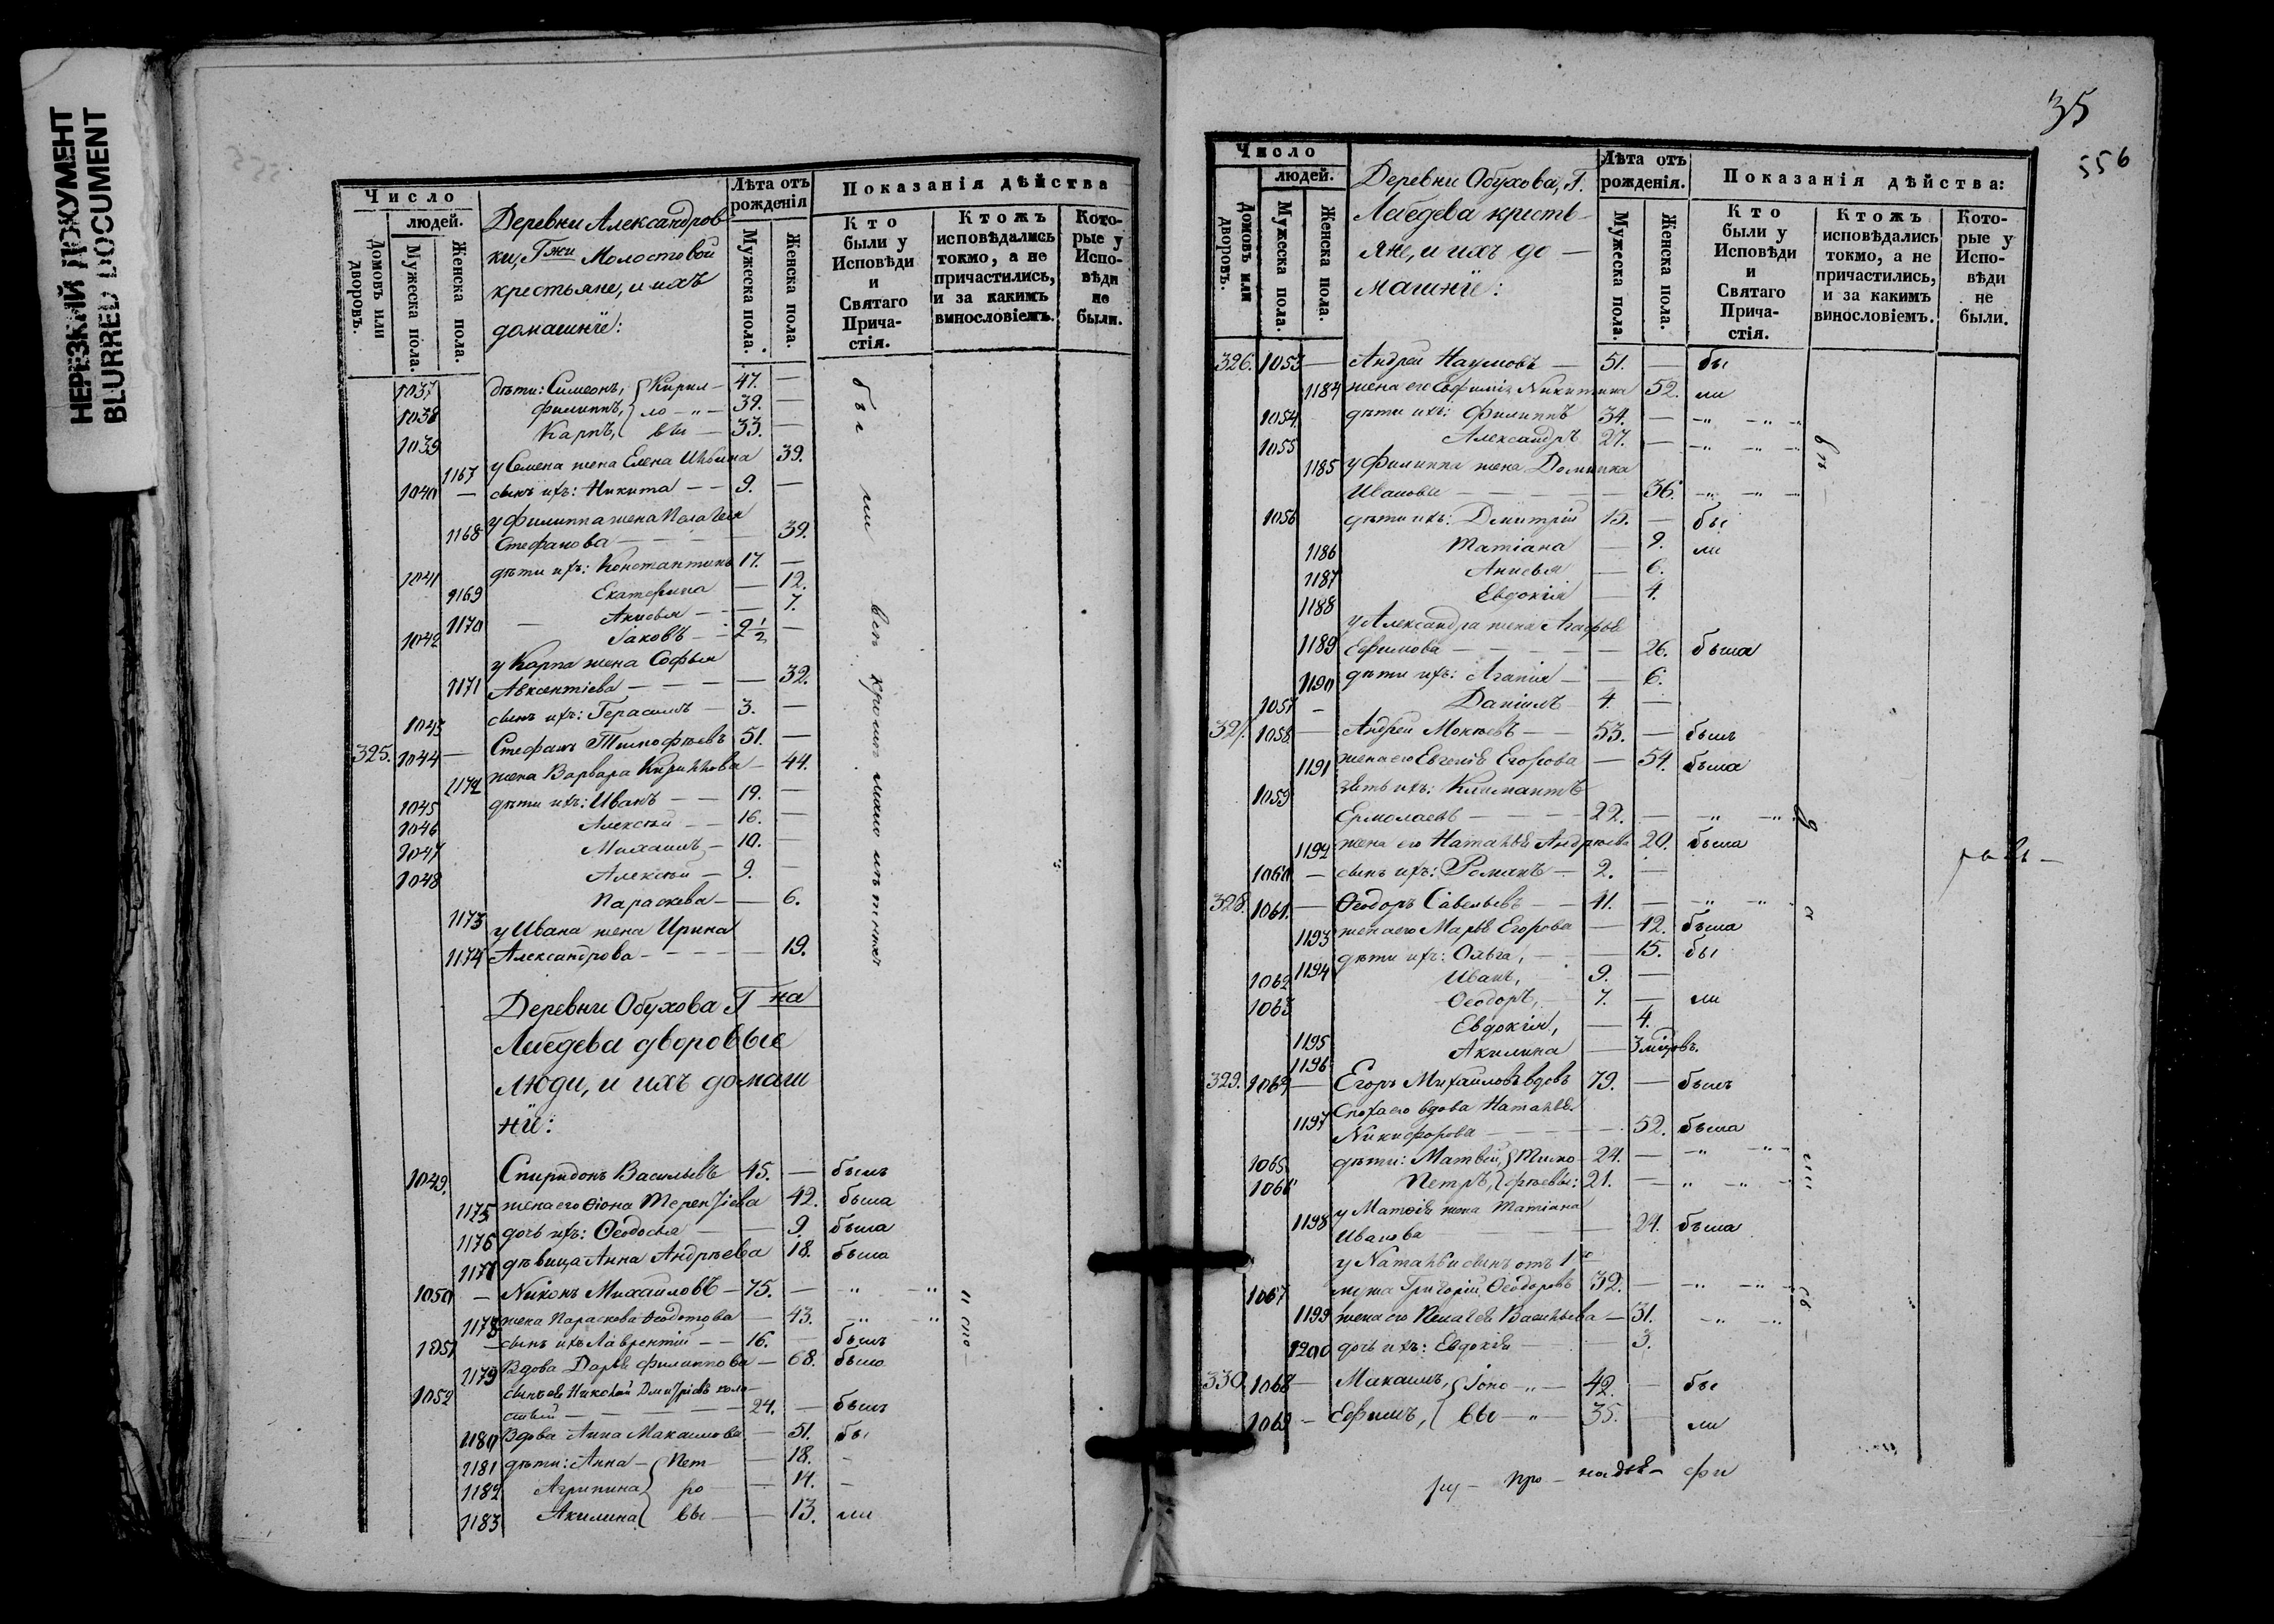 НЕРЕЗКИЙ ДОКУМЕНТ
BLURRED DOCUMENT
Число
людей.
Домовъ или дворовъ.
Мужеска пола.
Женска пола.
Деревни Александров
ки, Гжи Молостовой
крестьяне, и ихъ
домашнїе:
Лѣта отъ рожденія
Мужеска пола.
Женска пола.
Показанія дѣйства
Кто были у Исповѣди и Святаго Прича-стія.
Ктожъ исповѣдались токмо, а не причастились, и за какимъ винословіемъ.
Кото-рые у Испо-вѣди не были.
1037 дѣти: Симеонъ, Кирил- 47. —
1038 Филиппъ, ло - " - 39. —
1039 Карпъ, вы — 33. —
1167 у Семена жена Елена 39.
1040 — сынъ ихъ: Никита — — 9. —
у Филиппа жена Пелагея
1168 Стефанова — 39.
1041 дѣти ихъ: Константинъ 17. —
1169 Екатерина — 12.
1170 Анисья — 7.
1042 Іаковъ — 2 1/2 —
у Карпа жена Софья
1171 Авксентіева — 32.
1043 сынъ ихъ: Герасимъ — 3. —
325. 1044 — Стефанъ Тимофѣевъ 51. —
1172 жена Варвара Кириллова — 44.
1045 дѣти ихъ: Иванъ — — 19. —
1046 Алексѣй — — 16. —
1047 Михаилъ — 10. —
1048 Алексѣй — 9. —
1173 Параскева — — 6.
у Ивана жена Ирина
1174 Александрова — 19.
бы ли
Деревни Обухова Г на
Лебедева дворовые
люди, и ихъ домаш
нїе:
1049. Спиридонъ Васильевъ 45. — былъ
1175 жена его Ѳіона Терентіева 42. была
1176 дочь ихъ: Ѳеодосья — 9. была
1177 дѣвица Анна Андрѣева 18. была
1050 — Никонъ Михайловъ — 75. — " — "
1178 жена Параскева Ѳеодотова — 43. " — "
1051 — сынъ ихъ Лаврентій — — 16. — былъ
1179 Вдова Дарья Филиппова — 68. была
1052 сынъ ея Николай Дмитріевъ холо-
стый — 24. — былъ
1180 Вдова Анна Макаимова — 51. бы
1181 дѣти: Анна — Пет — 18. -
1182 Агрипина ро — 14. -
1183 Акилина вы — — 13. ли
и спо —
35
556
Число
людей.
Домовъ или дворовъ.
Мужеска пола.
Женска пола.
Деревни Обухова, Г.
Лебедева кресть-
яне, и ихъ до —
машнїе:
Лѣта отъ рожденія.
Мужеска пола.
Женска пола.
Показанія дѣйства:
Кто были у Исповѣди и Святаго Прича-стія.
Ктожъ исповѣдались токмо, а не причастились, и за какимъ винословіемъ.
Кото-рые у Испо-вѣди не были.
326. 1053 — Андрей Наумовъ — 51. — бы
1184 жена его Евфимія Никитина 52. ли
1054. дѣти ихъ: Филиппъ 34. — " — "
1055 Александръ 27. — " — "
1185 у Филиппа жена Домника
Иванова — 36. — " — "
1056 дѣти ихъ: Дмитрій 15. — бы
1186 Татіана — 9. ли
1187 Анисья — 6.
1188 Евдокія — 4.
у Александра жена Агафья
1189 Ефимова — 26. была
1190 дѣти ихъ: Агапія — — 6.
1057 — Даніилъ 4. —
327. 1058. — Андрей Мокѣевъ — — 53. — былъ
1191 жена его Евгенія Егорова — 54. была
1059 зять ихъ: Климантъ
Ермолаевъ — 22. — " — "
1192 жена его Наталья Андрѣева 20. была
1060 — сынъ ихъ: Романъ — 2. —
328. 1061. — Ѳеодоръ Савельевъ — — 41. — " "
1193 жена его Марья Егорова — 42. была
1194 дѣти ихъ: Ольга, — 15. бы
1062 Иванъ, 9. —
1063 Ѳеодоръ, 7. — ли
1195 Евдокія, — 4.
1196 Акилина — 3 мцовъ.
329. 1064 — Егоръ Михайловъ вдовъ 79. — былъ
1197 Сноха его вдова Наталья
Никифорова — 52. была
1065 дѣти: Матвѣй, Тимо- 24. — " "
1066 Петръ, фѣевы: 21. — " — "
1198 у Матвѣя жена Татіана
Иванова — 24. была
у Натальи сынъ отъ 1го
1067 мужа Григорій Ѳеодоровъ 32. — " — "
1199 жена его Пелагея Васильева — 31. — " — "
1200 дочь ихъ: Евдокія — 3.
330. 1068 — Макаимъ, Іоно - " — 42. — бы
1069 — Ефимъ, вы — " — 35. — ли